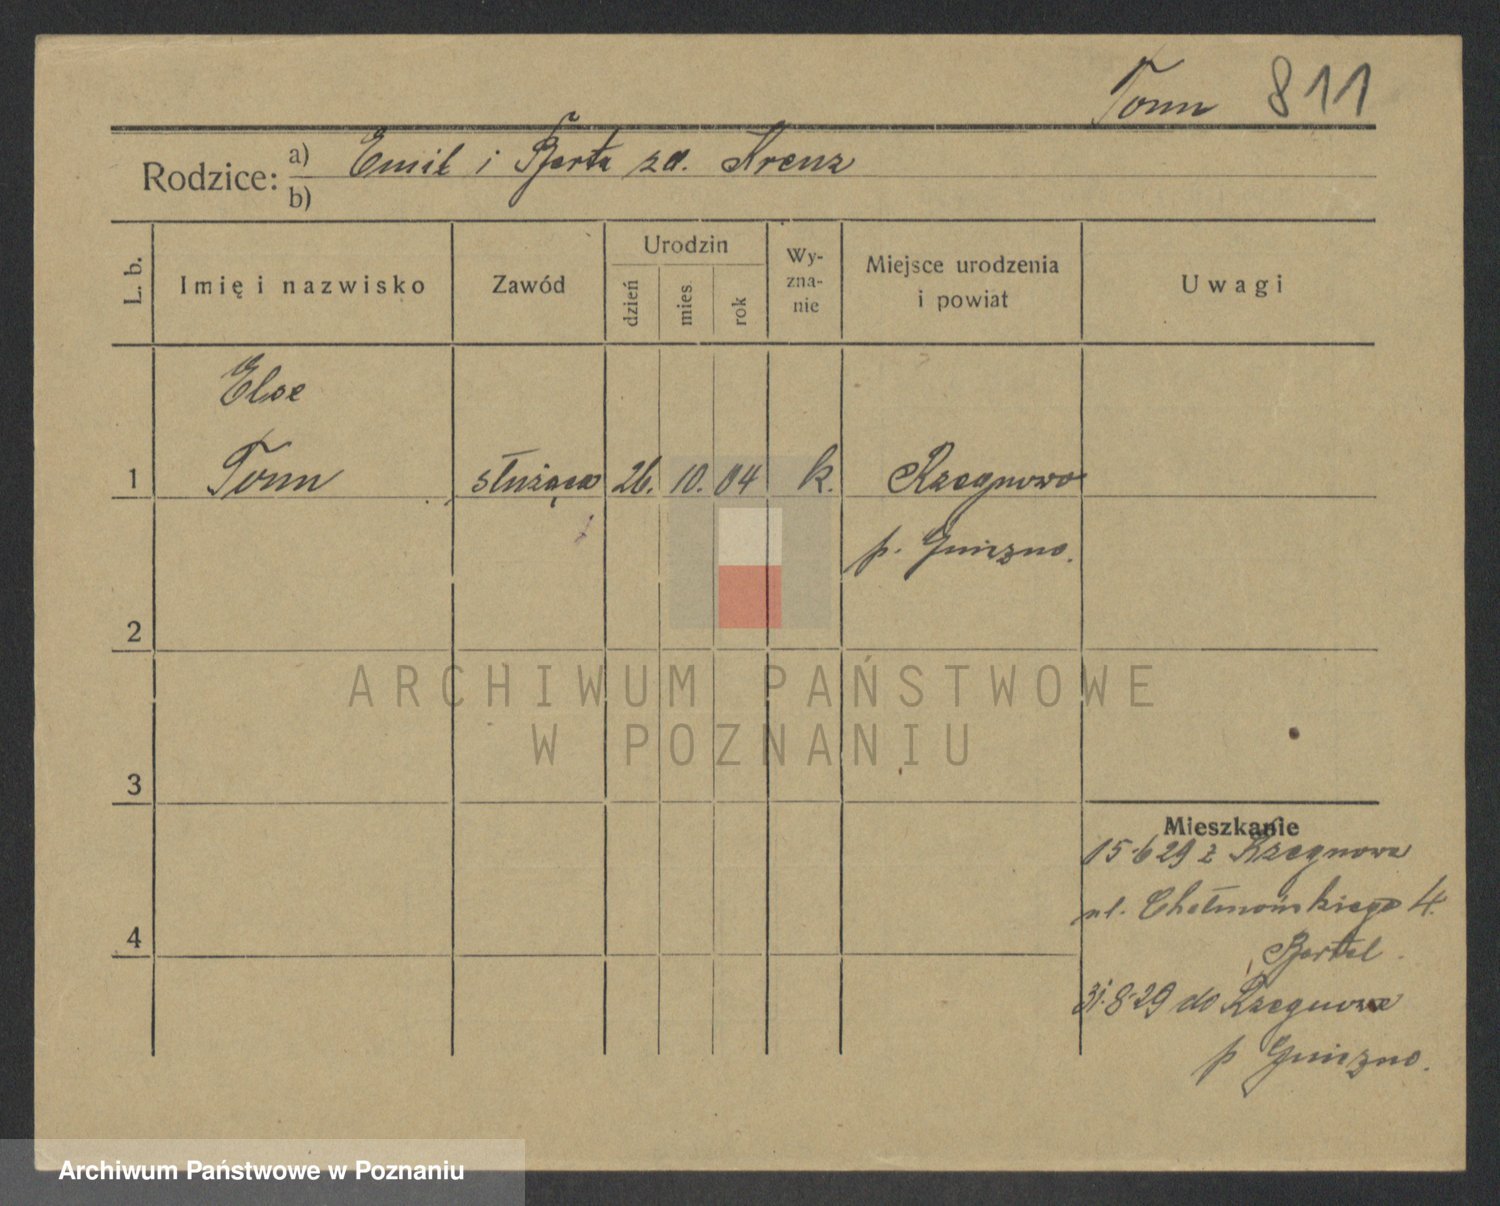 Tonn 811
Rodzice: a) Emil i Berta zd. Krenz
b)
L. b. Imię i nazwisko Zawód Urodzin dzień mies rok Wy-zna-nie Miejsce urodzenia i powiat Uwagi
Else
1 Tonn służąca 26. 10. 04 k. Rzegnowo
p. Gniezno.
2
ARCHIWUM PAŃSTWOWE
W POZNANIU
3
Mieszkanie
15-6 29 z Rzegnowa
ul. Chełmońskiego 4.
Bertel.
4
31.8-29 do Rzegnowa
p Gniezno.
Archiwum Państwowe w Poznaniu